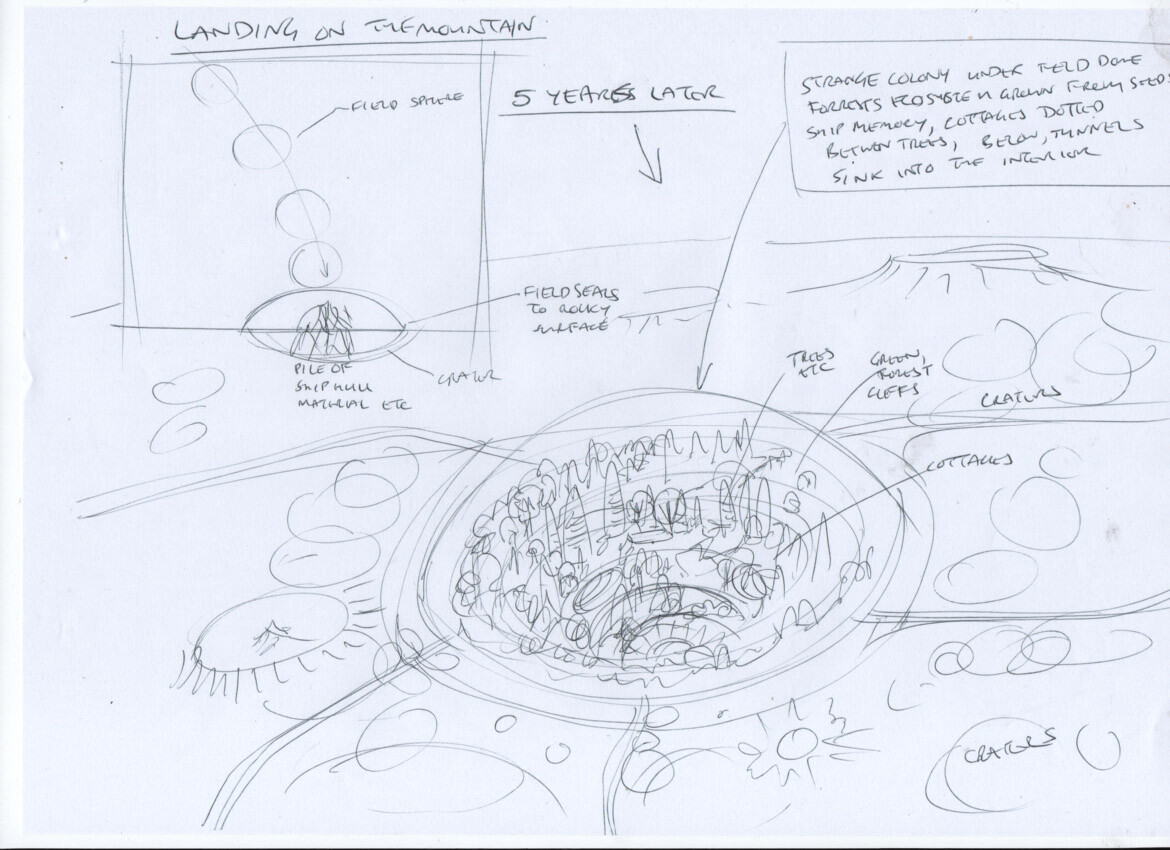 LANDING ON THE MOUNTAIN
FIELD SPHERE
FIELD SEALS
TO ROCKY
SURFACE
PILE OF
SHIP HULL
MATERIAL ETC
CRATER
5 YEARS LATER
STRANGE COLONY UNDER FIELD DOME
FORRESTS ECOSYSTEM GROWN FROM SEEDS
SHIP MEMORY, COTTAGES DOTTED
BETWEEN TREES, BELOW, TUNNELS
SINK INTO THE INTERIOR
TREES
ETC
GREEN,
FOREST
CLEFFS
CRATORS
COTTAGES
CRATORS